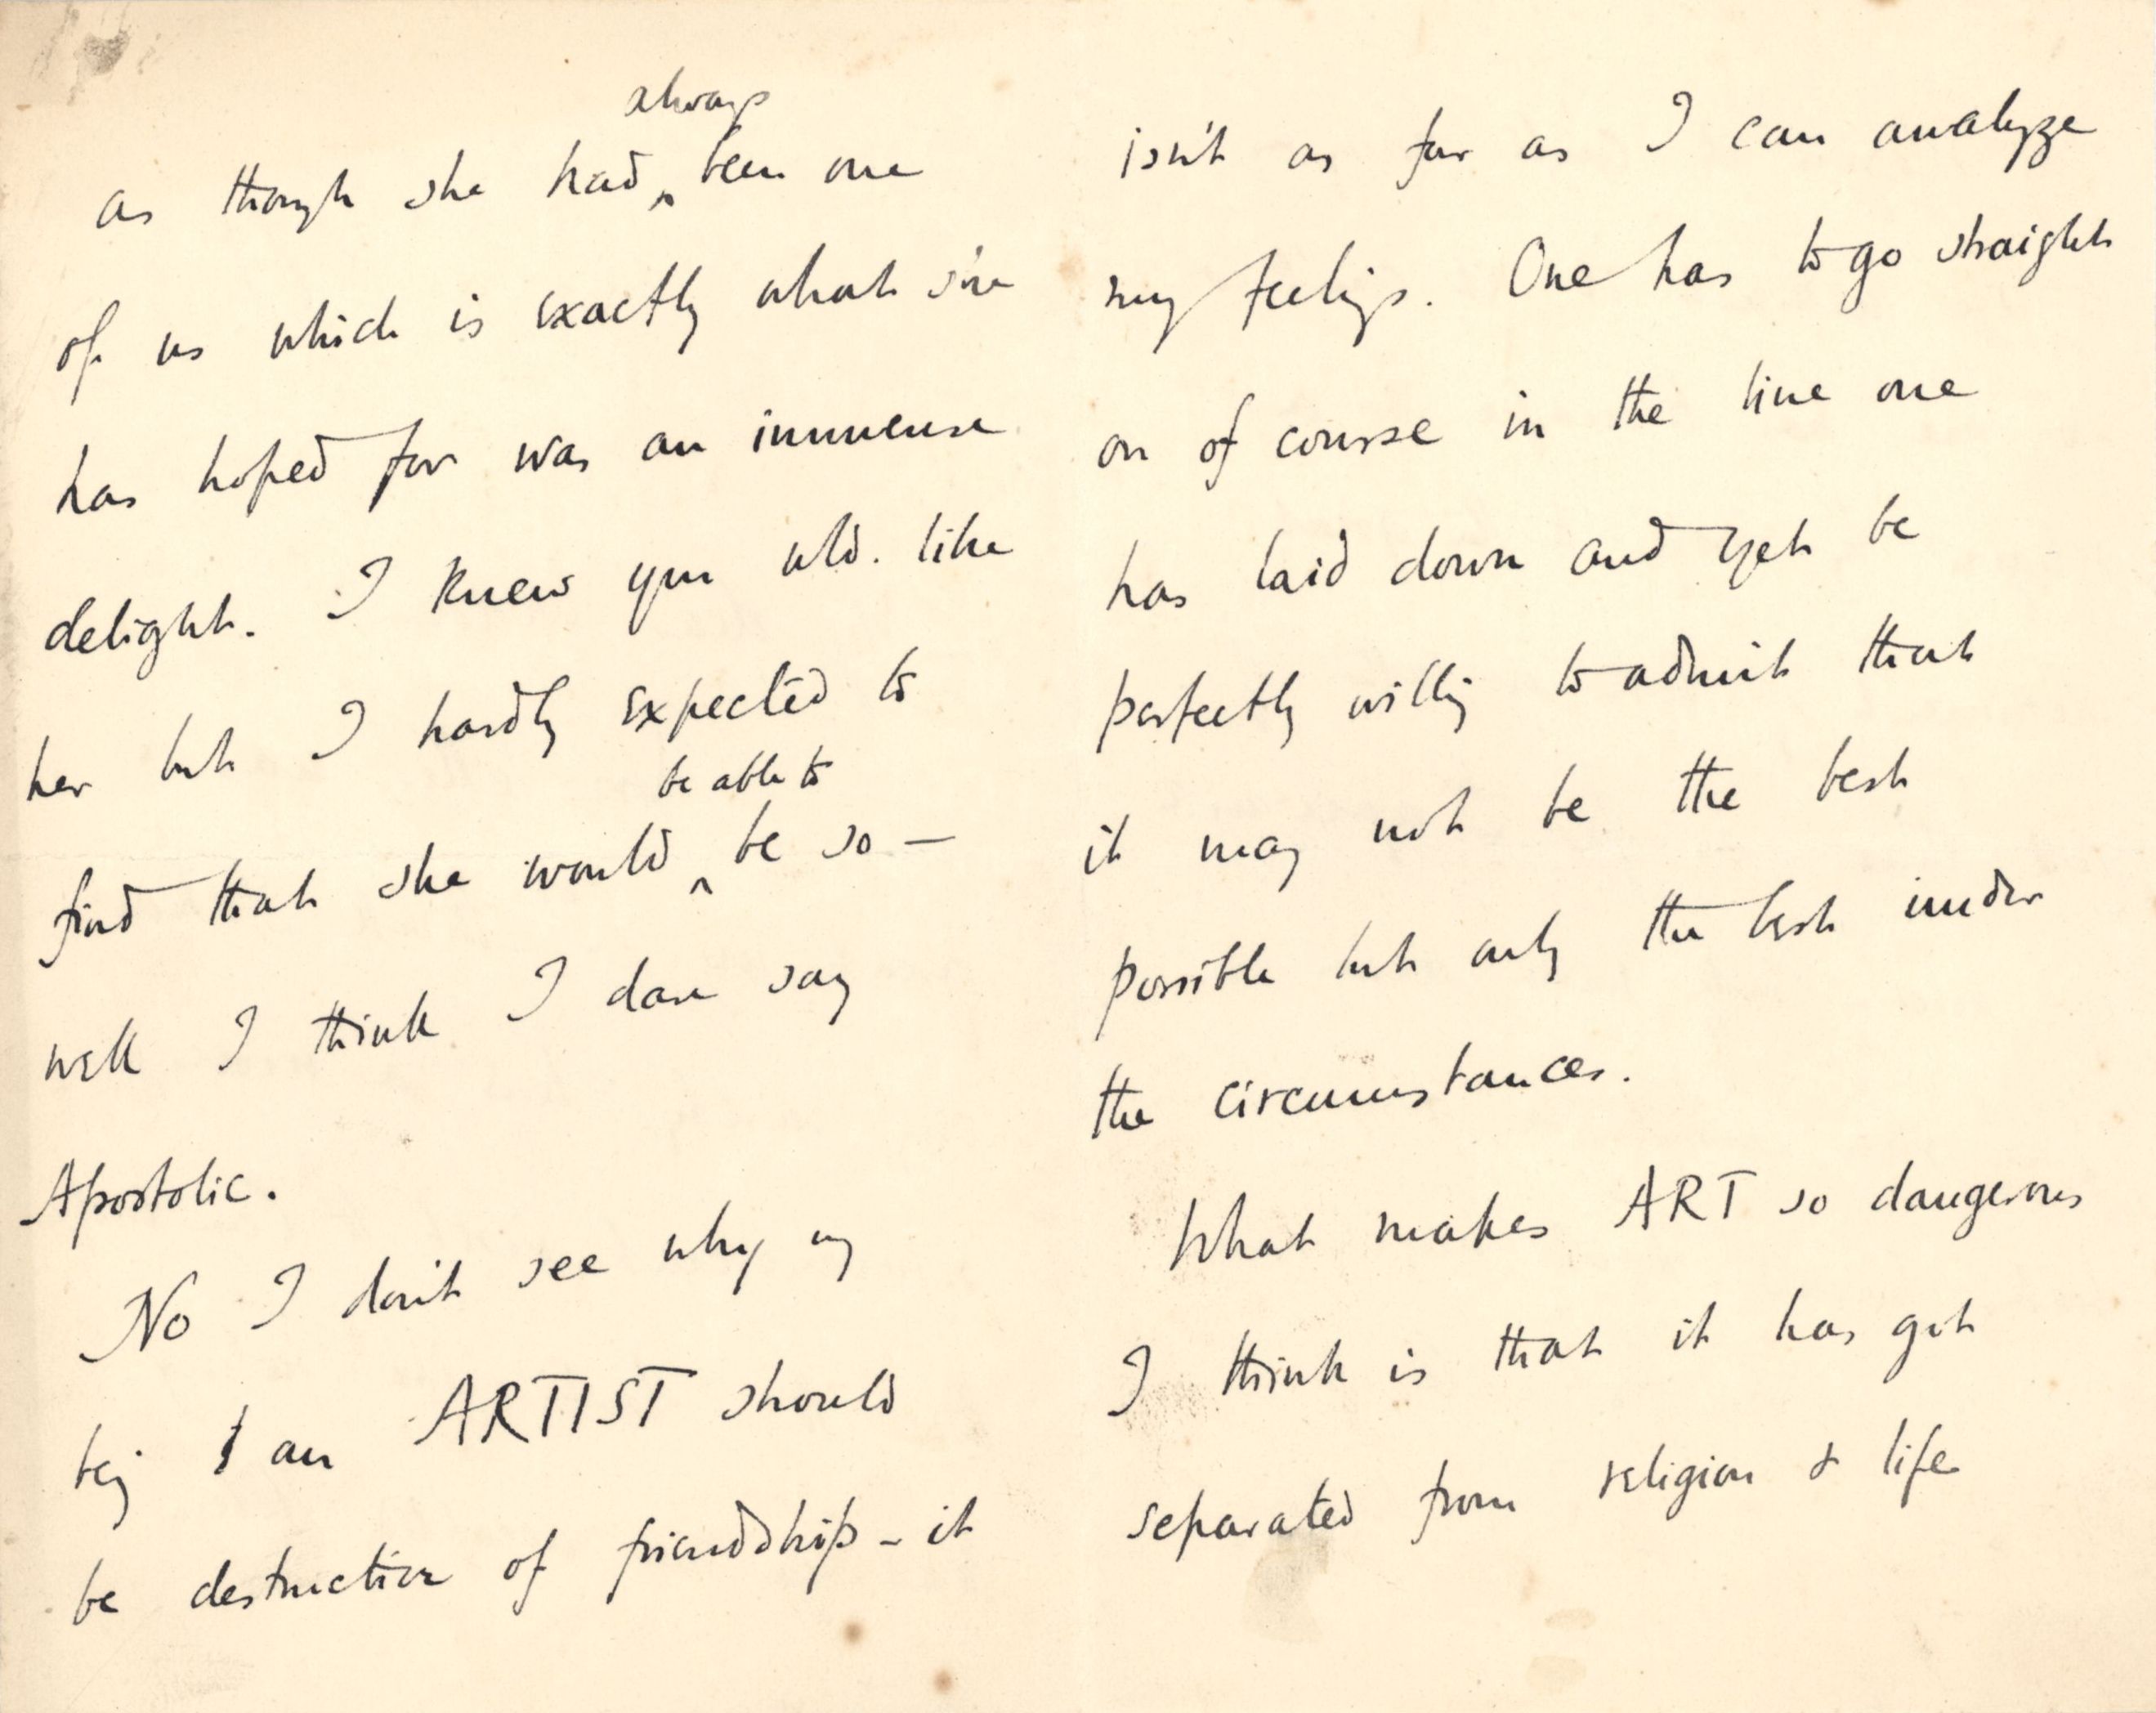 as though she had ^always been one
of us which is exactly what one
has hoped for was an immense
delight. I knew you wld. like
her but I hardly expected to
find that she would ^be able to be so —
well I think I dare say
Apostolic.
No I don't see why my
being an ARTIST should
be destruction of friendship - it
isn't as far as I can analyze
my feelings. One has to go straight
on of course in the line one
has laid down and yet be
perfectly willing to admit that
it may not be the best
possible but only the best under
the circumstances.
What makes ART so dangerous
I think is that it has got
separated from religion & life